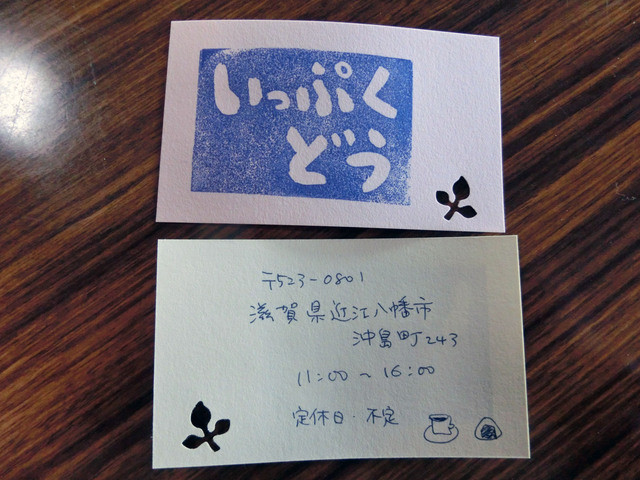 いっぷく
どう
〒523-0801
滋賀県近江八幡市
沖島町243
11:00～16:00
定休日・不定